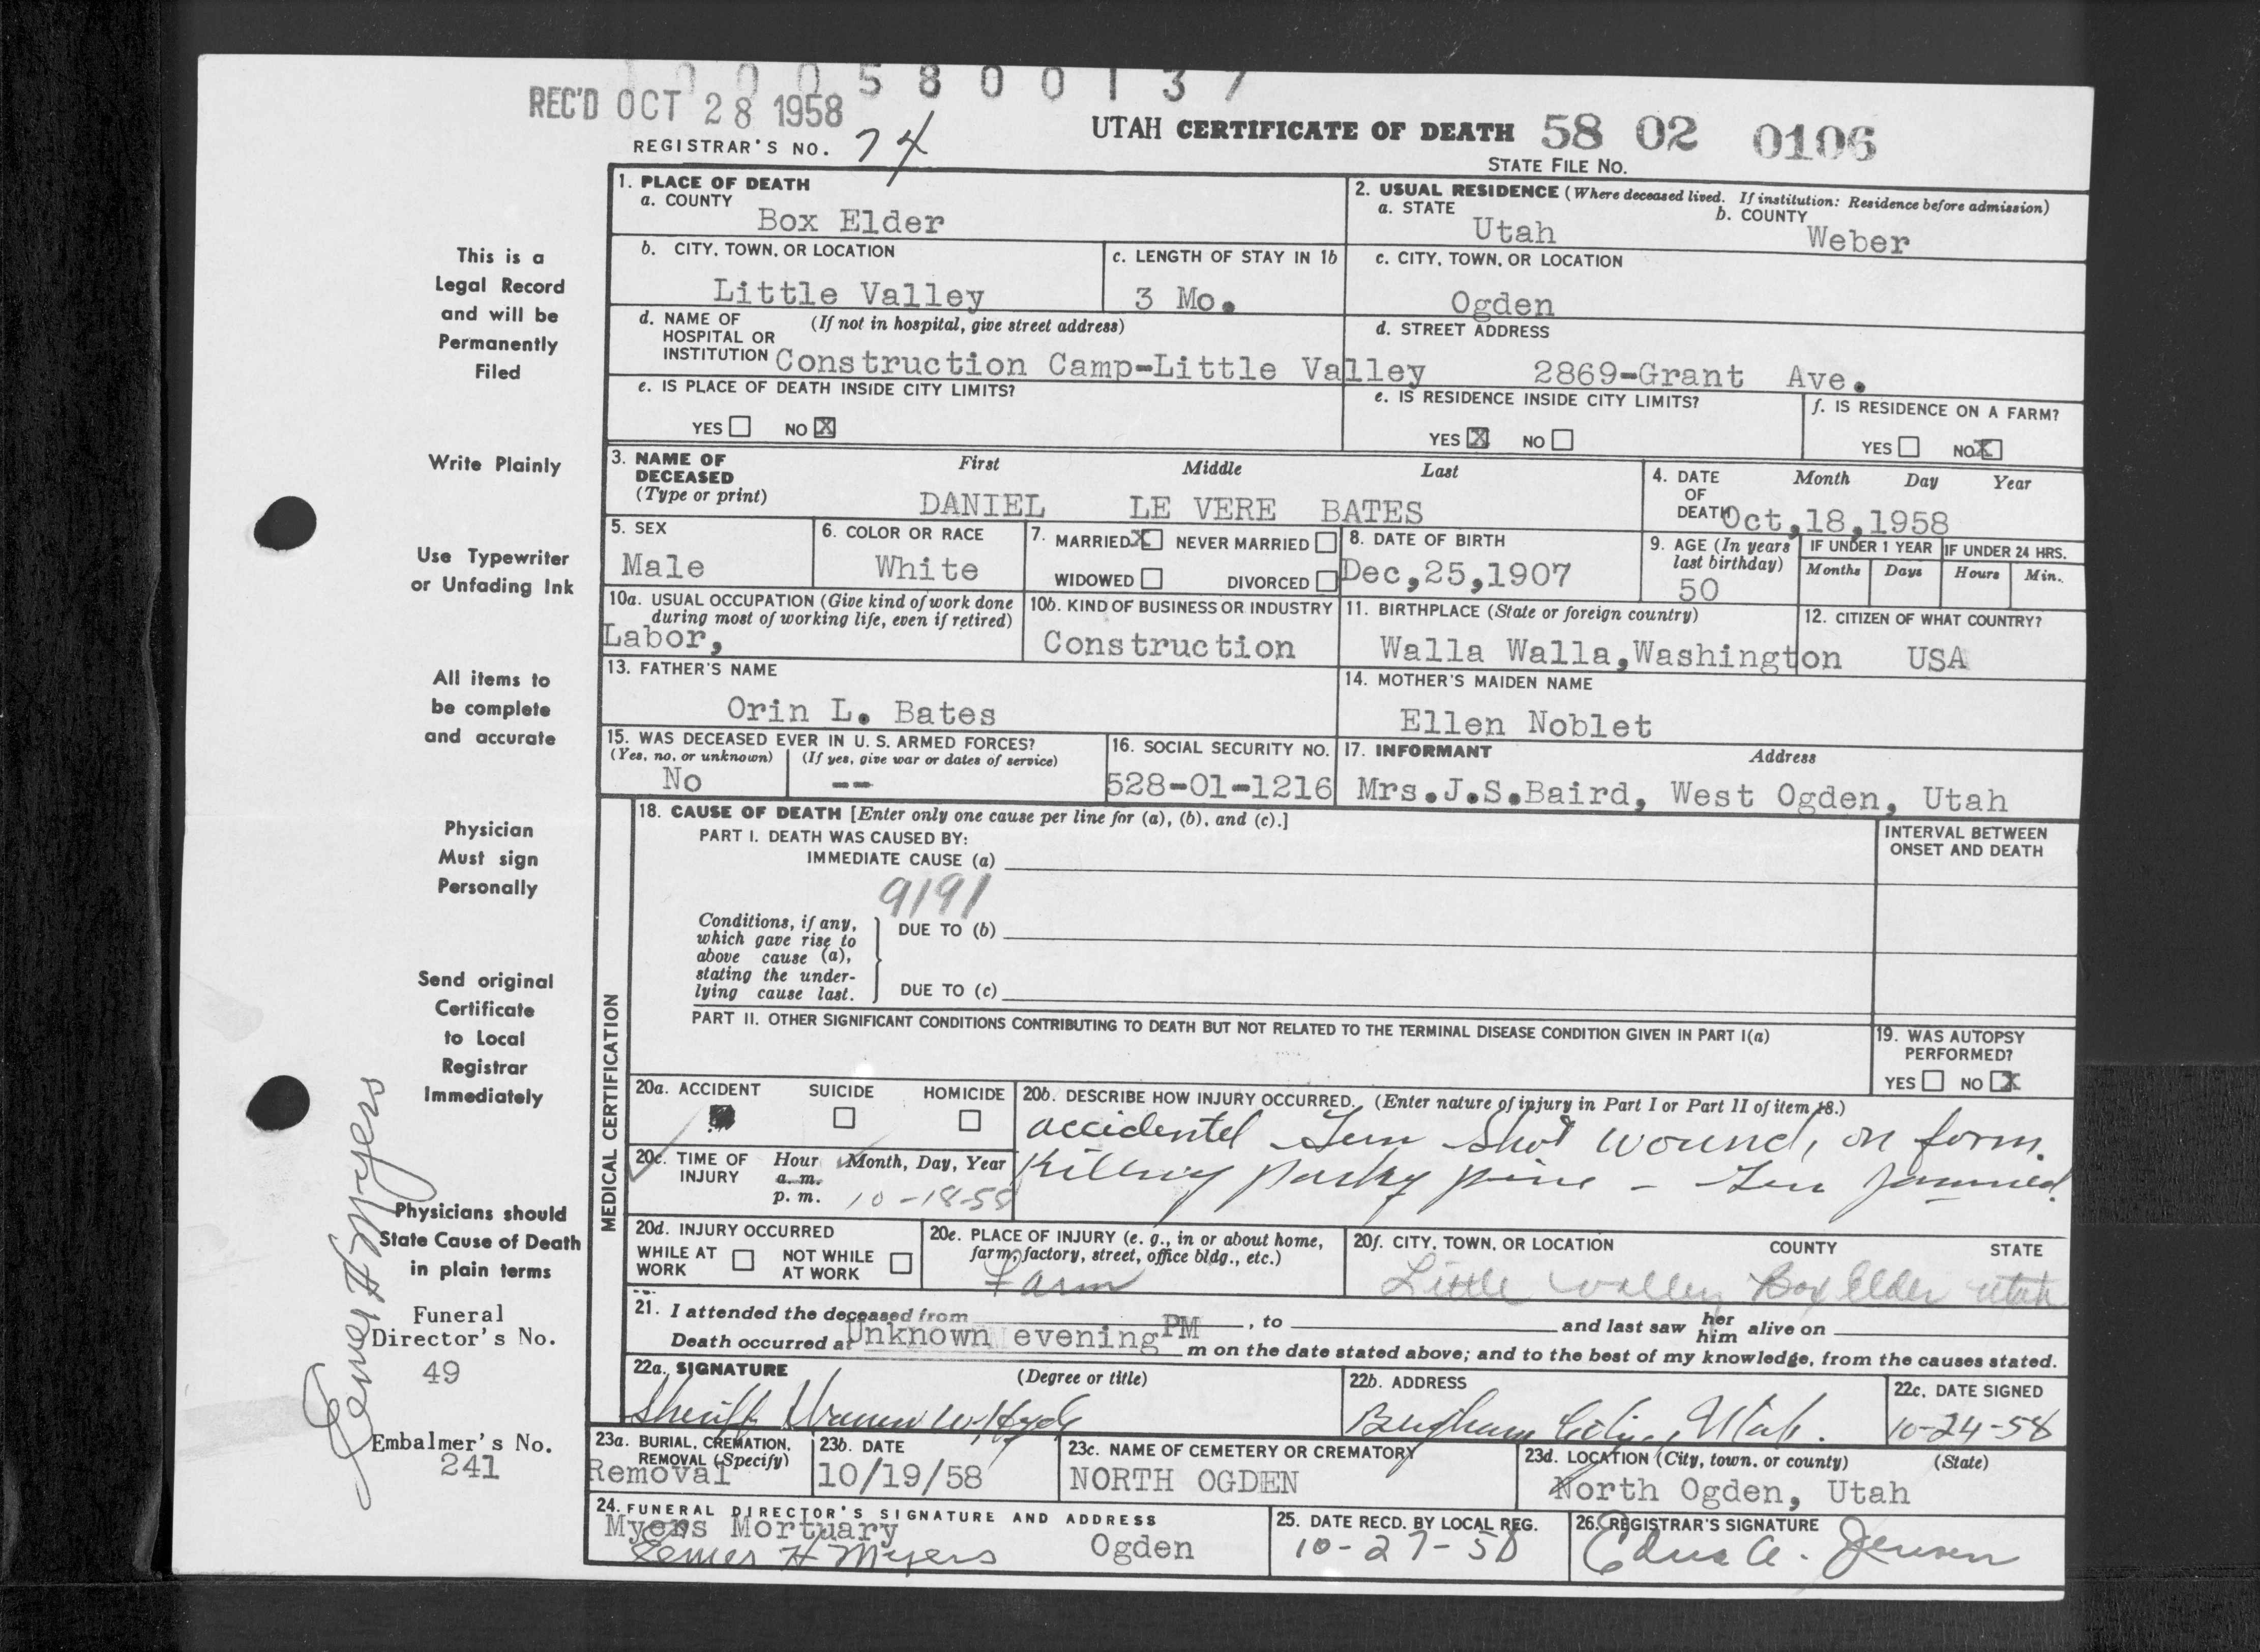 1 0 0 0 5 8 0 0 1 3 7
REC'D OCT 28 1958
REGISTRAR'S NO. 74
UTAH CERTIFICATE OF DEATH 58 02 0106
STATE FILE NO.
1. PLACE OF DEATH
a. COUNTY
Box Elder
2. USUAL RESIDENCE (Where deceased lived. If institution: Residence before admission)
a. STATE
Utah
b. COUNTY
Weber
b. CITY, TOWN, OR LOCATION
Little Valley
c. LENGTH OF STAY IN 1b
3 Mo.
c. CITY, TOWN, OR LOCATION
Ogden
d. NAME OF (If not in hospital, give street address)
HOSPITAL OR
INSTITUTION Construction Camp-Little Valley
d. STREET ADDRESS
2869-Grant Ave.
e. IS PLACE OF DEATH INSIDE CITY LIMITS?
YES NO X
e. IS RESIDENCE INSIDE CITY LIMITS?
YES X NO
f. IS RESIDENCE ON A FARM?
YES NO X
3. NAME OF DECEASED
(Type or print)
First Middle Last
DANIEL LE VERE BATES
4. DATE OF DEATH
Month Day Year
Oct,18,1958
5. SEX
Male
6. COLOR OR RACE
White
7. MARRIED X NEVER MARRIED
WIDOWED DIVORCED
8. DATE OF BIRTH
Dec,25,1907
9. AGE (In years last birthday)
50
IF UNDER 1 YEAR
Months Days
IF UNDER 24 HRS.
Hours Min.
10a. USUAL OCCUPATION (Give kind of work done
during most of working life, even if retired)
Labor,
10b. KIND OF BUSINESS OR INDUSTRY
Construction
11. BIRTHPLACE (State or foreign country)
Walla Walla,Washington
12. CITIZEN OF WHAT COUNTRY?
USA
13. FATHER'S NAME
Orin L. Bates
14. MOTHER'S MAIDEN NAME
Ellen Noblet
15. WAS DECEASED EVER IN U. S. ARMED FORCES?
(Yes, no, or unknown) (If yes, give war or dates of service)
No --
16. SOCIAL SECURITY NO.
528-01-1216
17. INFORMANT Address
Mrs.J.S.Baird, West Ogden, Utah
MEDICAL CERTIFICATION
18. CAUSE OF DEATH [Enter only one cause per line for (a), (b), and (c).]
PART I. DEATH WAS CAUSED BY:
IMMEDIATE CAUSE (a)
9191
INTERVAL BETWEEN
ONSET AND DEATH
Conditions, if any,
which gave rise to
above cause (a),
stating the under-
lying cause last.
DUE TO (b)
DUE TO (c)
PART II. OTHER SIGNIFICANT CONDITIONS CONTRIBUTING TO DEATH BUT NOT RELATED TO THE TERMINAL DISEASE CONDITION GIVEN IN PART I(a)
19. WAS AUTOPSY
PERFORMED?
YES NO X
20a. ACCIDENT SUICIDE HOMICIDE
20b. DESCRIBE HOW INJURY OCCURRED. (Enter nature of injury in Part I or Part II of item 18.)
accidentel Gun Shot wound, on form.
Killing porky pine - Gun Jammed.
20c. TIME OF INJURY
Hour Month, Day, Year
a. m.
p. m.
10-18-58
20d. INJURY OCCURRED
WHILE AT WORK NOT WHILE AT WORK
20e. PLACE OF INJURY (e. g., in or about home,
farm, factory, street, office bldg., etc.)
Farm
20f. CITY, TOWN, OR LOCATION COUNTY STATE
Little Valley Box Elder Utah
21. I attended the deceased from , to and last saw her him alive on
Death occurred at Unknown evening PM m on the date stated above; and to the best of my knowledge, from the causes stated.
22a. SIGNATURE (Degree or title)
Sheriff Warren W. Hyde
22b. ADDRESS
Brigham City, Utah.
22c. DATE SIGNED
10-24-58
23a. BURIAL, CREMATION,
REMOVAL (Specify)
Removal
23b. DATE
10/19/58
23c. NAME OF CEMETERY OR CREMATORY
NORTH OGDEN
23d. LOCATION (City, town, or county) (State)
North Ogden, Utah
24. FUNERAL DIRECTOR'S SIGNATURE AND ADDRESS
Myers Mortuary
Elmer H Myers Ogden
25. DATE RECD. BY LOCAL REG.
10-27-58
26. REGISTRAR'S SIGNATURE
Edna A. Jensen
This is a
Legal Record
and will be
Permanently
Filed
Write Plainly
Use Typewriter
or Unfading Ink
All items to
be complete
and accurate
Physician
Must sign
Personally
Send original
Certificate
to Local
Registrar
Immediately
Physicians should
State Cause of Death
in plain terms
Funeral
Director's No.
49
Embalmer's No.
241
Elmer H Myers